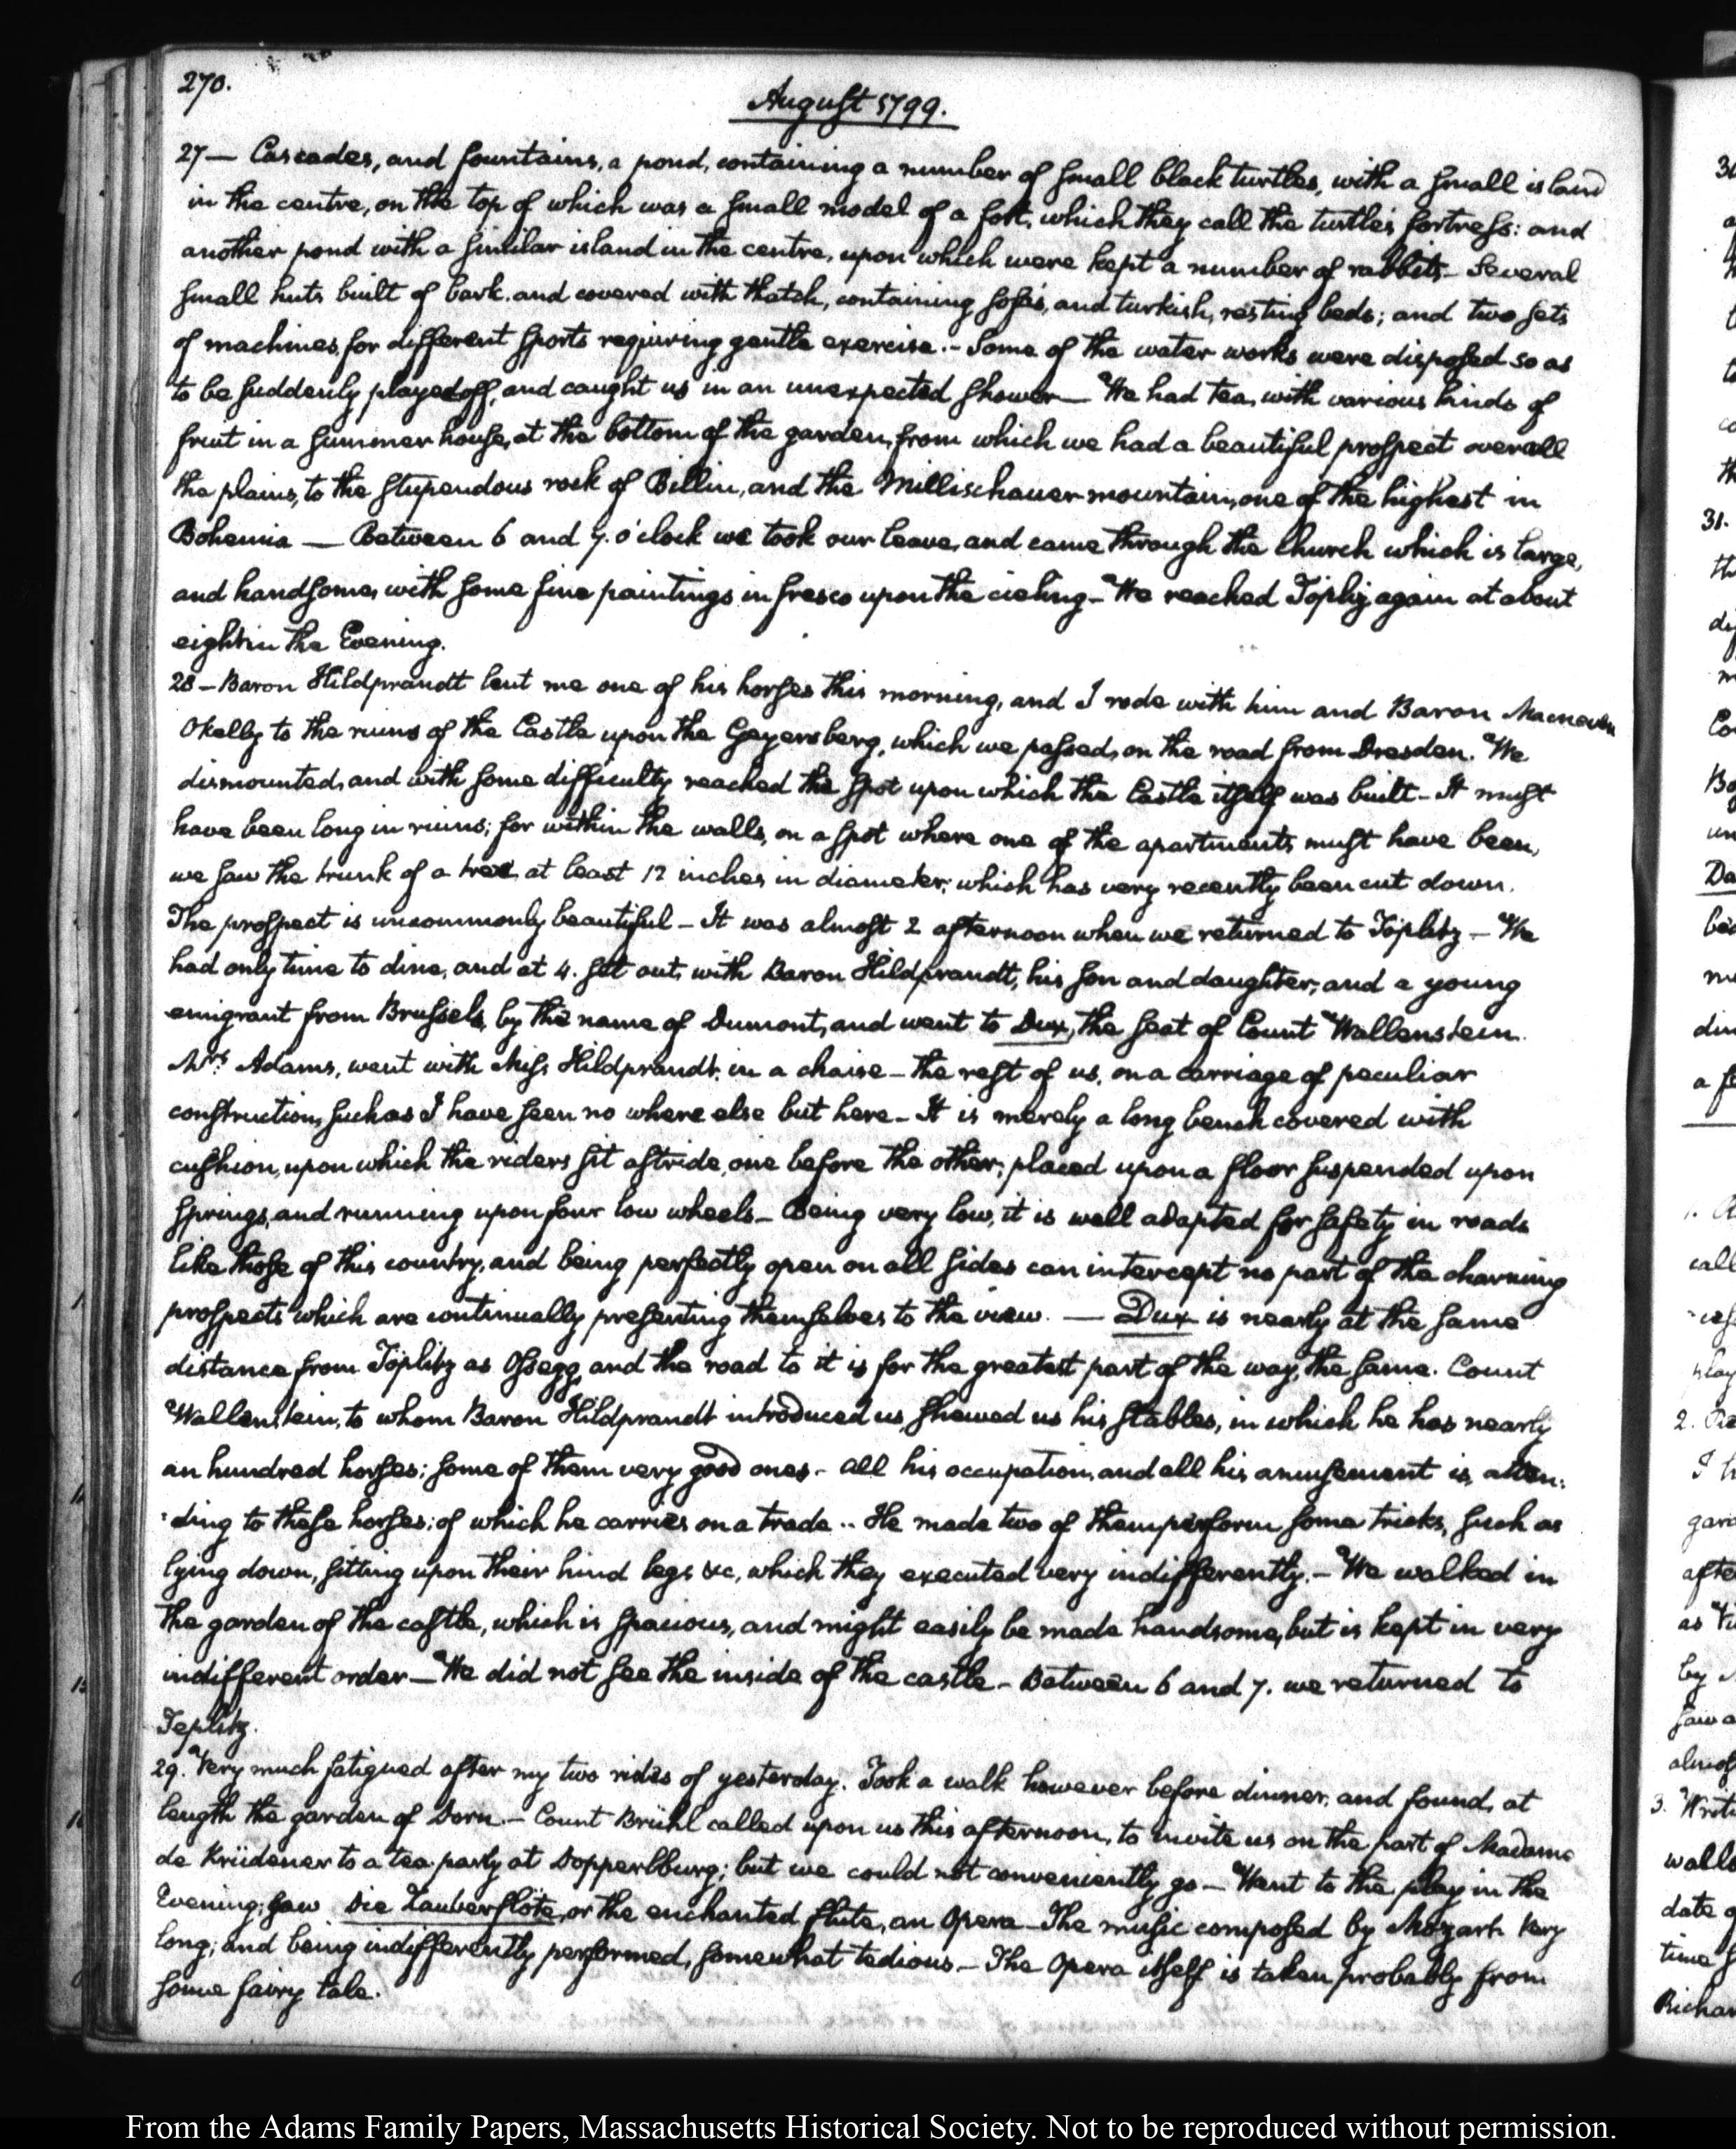 270.
August 1799.
27 — Cascades, and fountains, a pond, containing a number of small black turtles, with a small island
in the centre, on the top of which was a small model of a fort, which they call the turtle's fortress: and
another pond with a similar island in the centre, upon which were kept a number of rabbits — Several
small huts built of bark. and covered with thatch, containing sofa's, and turkish, resting beds; and two sets
of machines, for different sports requiring gentle exercise. – Some of the water works were disposed so as
to be suddenly played off, and caught us in an unexpected shower — We had tea, with various kinds of
fruit in a summer house, at the bottom of the garden, from which we had a beautiful prospect over all
the plains, to the stupendous rock of Billin, and the Millischauer mountain, one of the highest in
Bohemia — Between 6 and 7. o'clock we took our leave, and came through the Church which is large,
and handsome, with some fine paintings in fresco upon the cieling — We reached Töpliz again at about
eight in the Evening.
28 – Baron Hildprandt lent me one of his horses this morning, and I rode with him and Baron Macneven
Okelly to the ruins of the Castle upon the Geyersberg, which we passed, on the road from Dresden. We
dismounted, and with some difficulty reached the spot upon which the Castle itself was built – It must
have been long in ruins; for within the walls, on a spot where one of the apartments must have been,
we saw the trunk of a tree, at least 12 inches in diameter, which has very recently been cut down.
The prospect is uncommonly beautiful – It was almost 2 afternoon when we returned to Töplitz – We
had only time to dine, and at 4. set out, with Baron Hildprandt, his son and daughter, and a young
emigrant from Brussels, by the name of Dumont, and went to Dux, the seat of Count Wallenstein.
Mrs. Adams, went with Miss Hildprandt, in a chaise – the rest of us, on a carriage of peculiar
construction, such as I have seen no where else but here – It is merely a long bench covered with
cushion, upon which the riders sit astride, one before the other; placed upon a floor suspended upon
springs, and running upon four low wheels – Being very low, it is well adapted for safety in roads
like those of this country, and being perfectly open on all sides can intercept no part of the charming
prospects which are continually presenting themselves to the view. — Dux is nearly at the same
distance from Töplitz as Ossegg, and the road to it is for the greatest part of the way, the same. Count
Wallenstein, to whom Baron Hildprandt introduced us, shewed us his stables, in which he has nearly
an hundred horses; some of them very good ones – all his occupation, and all his amusement is, atten:
:ding to these horses; of which he carries on a trade.. He made two of them perform some tricks, such as
lying down, sitting upon their hind legs &c, which they executed very indifferently. – We walked in
the garden of the castle, which is spacious, and might easily be made handsome, but is kept in very
indifferent order — We did not see the inside of the castle – Between 6 and 7. we returned to
Teplitz.
29. Very much fatigued after my two rides of yesterday. Took a walk however before dinner, and found, at
length the garden of Dorn. – Count Brühl called upon us this afternoon, to invite us on the part of Madame
de Krüdener to a tea party at Dopperlburg; but we could not conveniently go — Went to the play in the
Evening; saw Die Zauberflöte, or the enchanted flute, an Opera – The music composed by Mozart. Very
long; and being indifferently performed, somewhat tedious. – The Opera itself is taken probably from
some fairy tale.
From the Adams Family Papers, Massachusetts Historical Society. Not to be reproduced without permission.